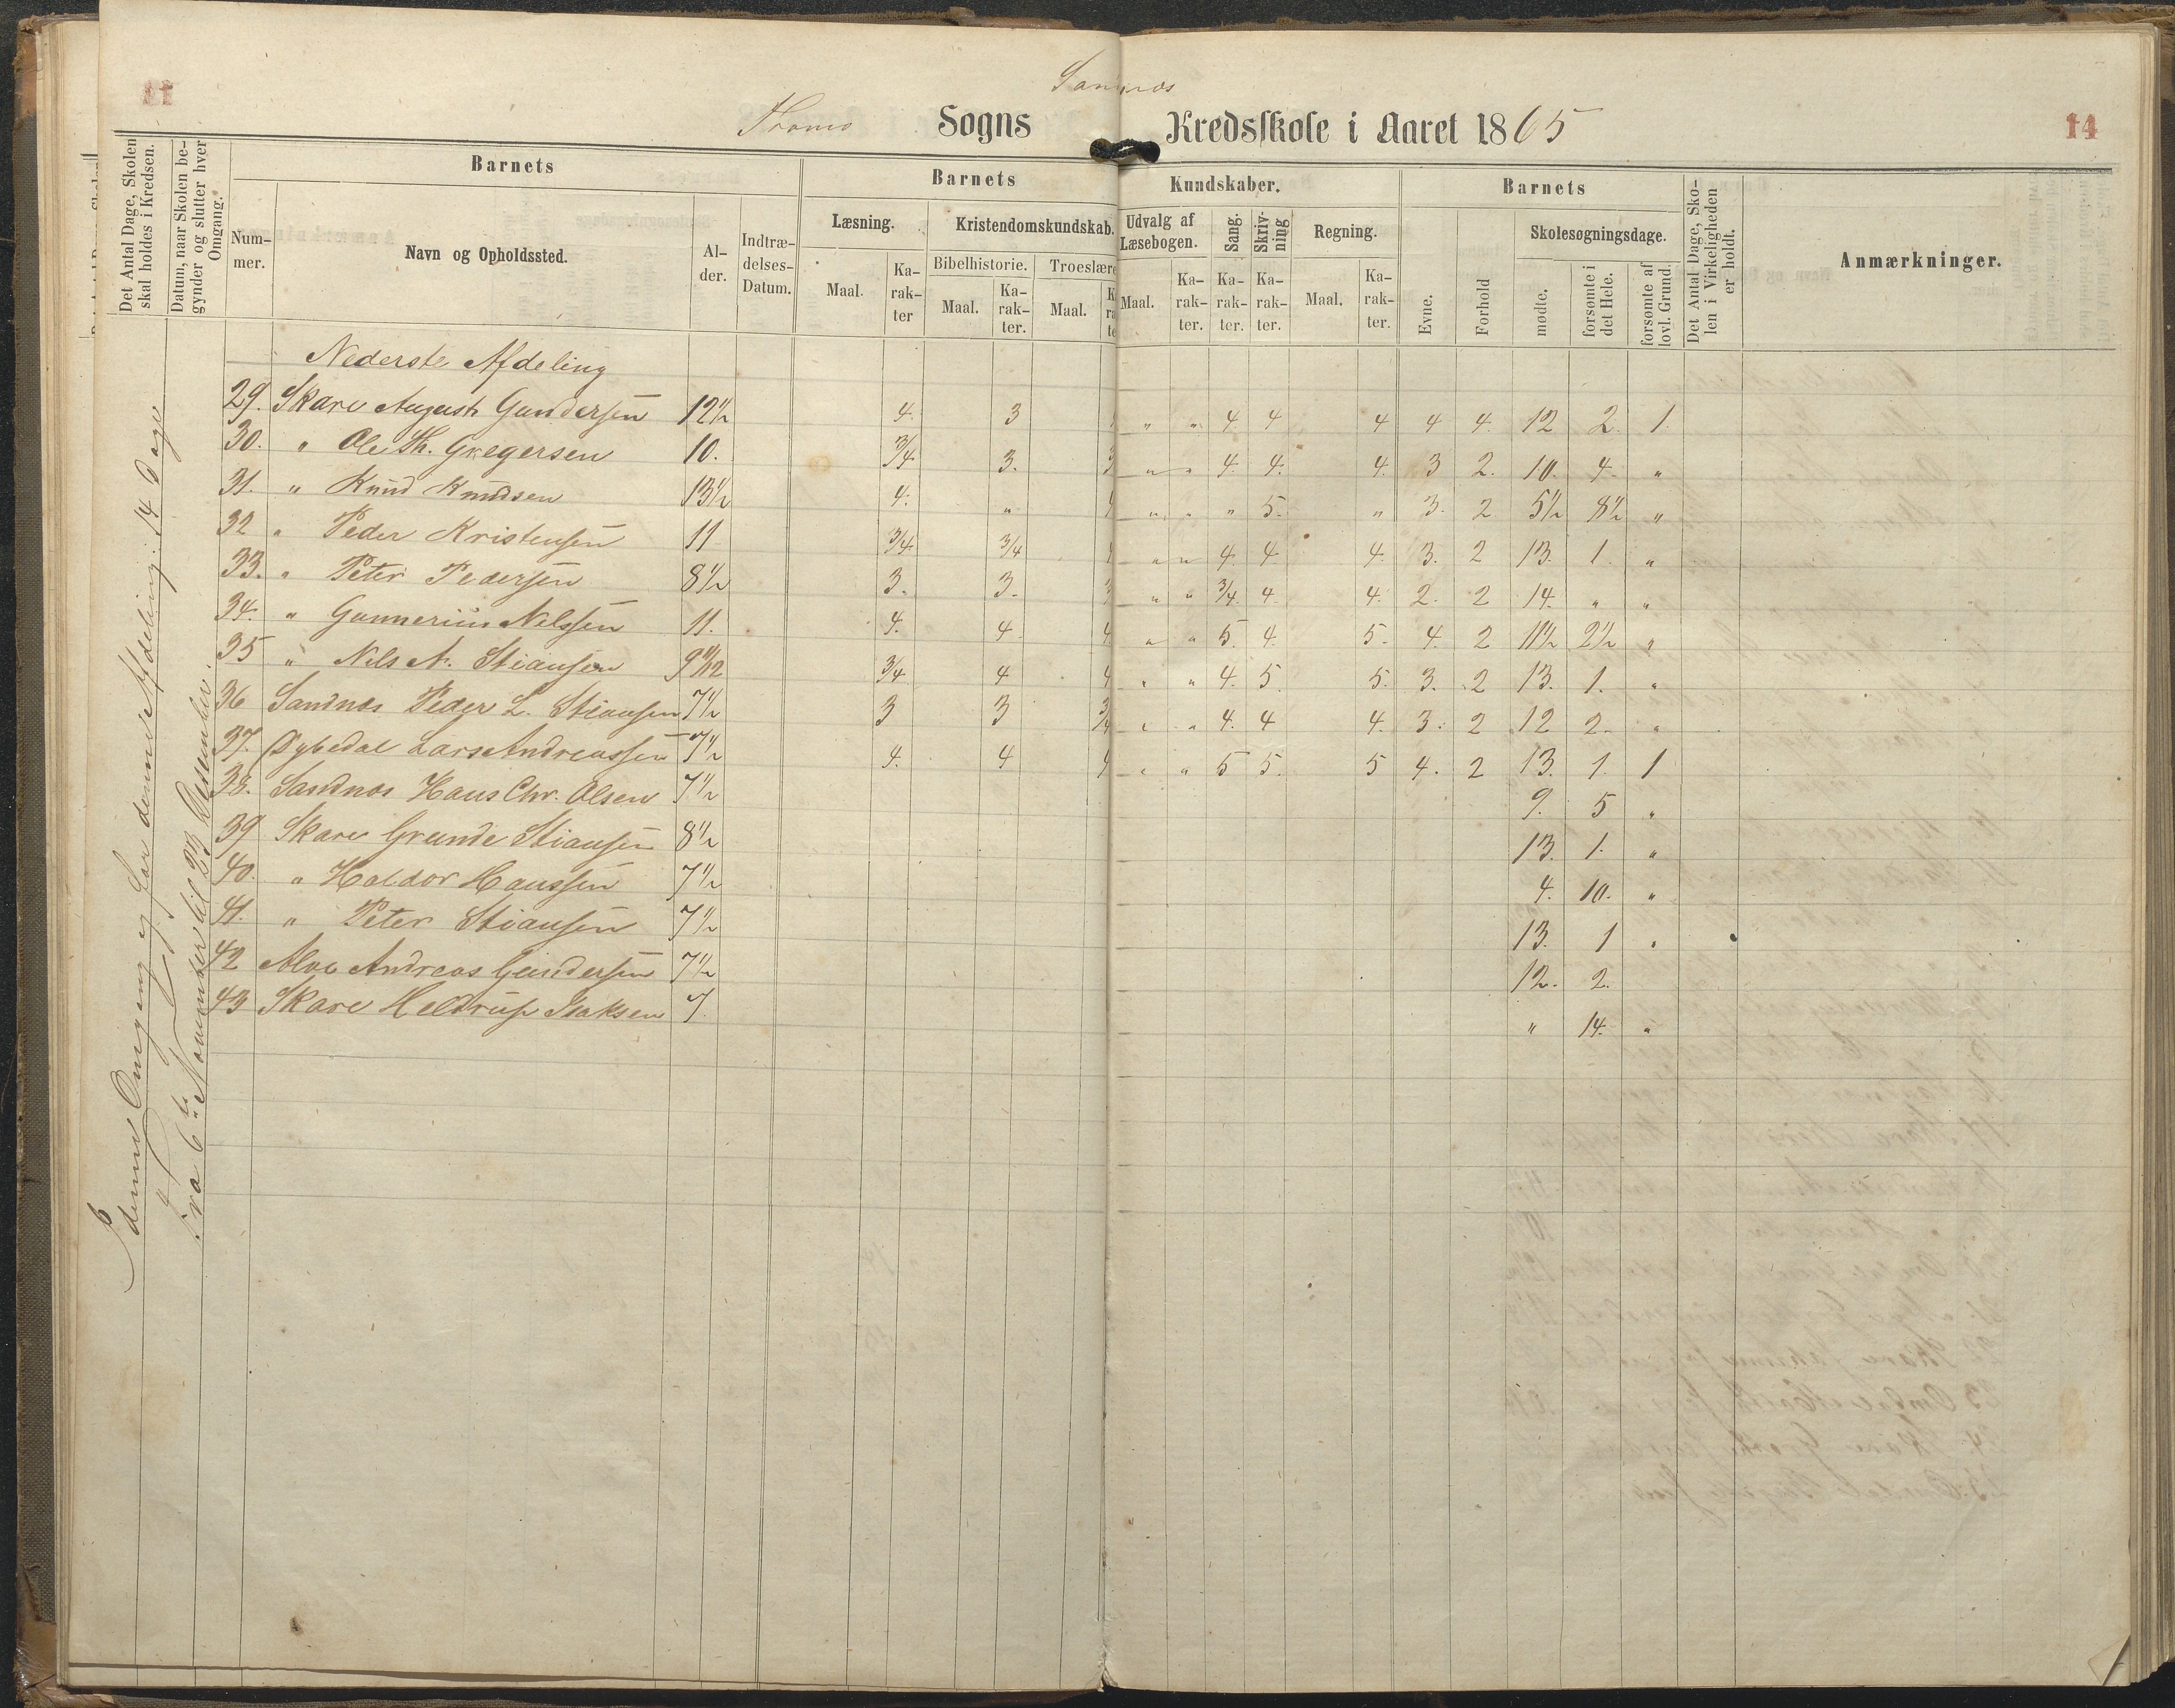 Sandnæs
Sogns Kredsskole i Aaret 1865
14
Det Antal Dage, Skolen skal holdes i Kredsen.
Datum, naar Skolen begynder og slutter hver Omgang.
Barnets
Barnets
Kundskaber.
Barnets
Det Antal Dage, Skolen i Virkeligheden er holdt.
Anmærkninger.
Nummer.
Navn og Opholdssted.
Alder.
Indtrædelses-Datum.
Læsning.
Kristendomskundskab.
Udvalg af Læsebogen.
Sang.
Skrivning
Regning.
Evne.
Forhold
Skolesøgningsdage.
Bibelhistorie.
Troeslære
Maal. Karakter Maal. Karakter. Maal.
Maal. Karakter. Karakter. Karakter. Maal. Karakter.
mødte.
forsømte i det Hele.
forsømte af lovl. Grund.
I denne Omgang og for denne Afdeling: 14 Dage
Fra 6te November til 23 Desember.
Nederste Afdeling
29. Skare August Gundersen 12½ 4. 3 " " 4 4 4 4 4. 12 2. 1.
30. " Ole Th. Gregersen 10. 3/4 3. " " 4. 4. 4. 3 2. 10. 4. "
31. " Knud Knudsen 13½ 4. " " " " 5. " 3. 2 5½ 8½ "
32 " Peder Kristensen 11 3/4 3/4 " " 4. 4. 4. 3. 2 13. 1. "
33. " Peter Pedersen 8½ 3. 3. " " 3/4. 4. 4. 2. 2 14. " "
34. " Gunnerius Nilssen 11. 4. 4. " " 5. 4. 5. 4. 2 11½ 2½ "
35 " Nils A. Stiansen 3/4 4 " " 4. 5. 5. 3. 2 13. 1. "
36 Sandnæs Peder L. Stiansen 7½ 3 3 " " 4. 4 4. 3. 2 12 2. "
37. Dybedal Lars Andreassen 7½ 4. 4 " " 5 5. 5 4. 2 13. 1. 1
38. Sandnæs Hans Chr. Olsen 7½ 9. 5 "
39 Skare Grunde Stiansen 8½ 13. 1. "
40. " Haldor Hanssen 7½ 4. 10. "
41. " Peter Stiansen 7½ 13. 1 "
42 Alve Andreas Gundersen 7½ 12. 2.
43 Skare Heldrup Isaksen 7. " 14. "